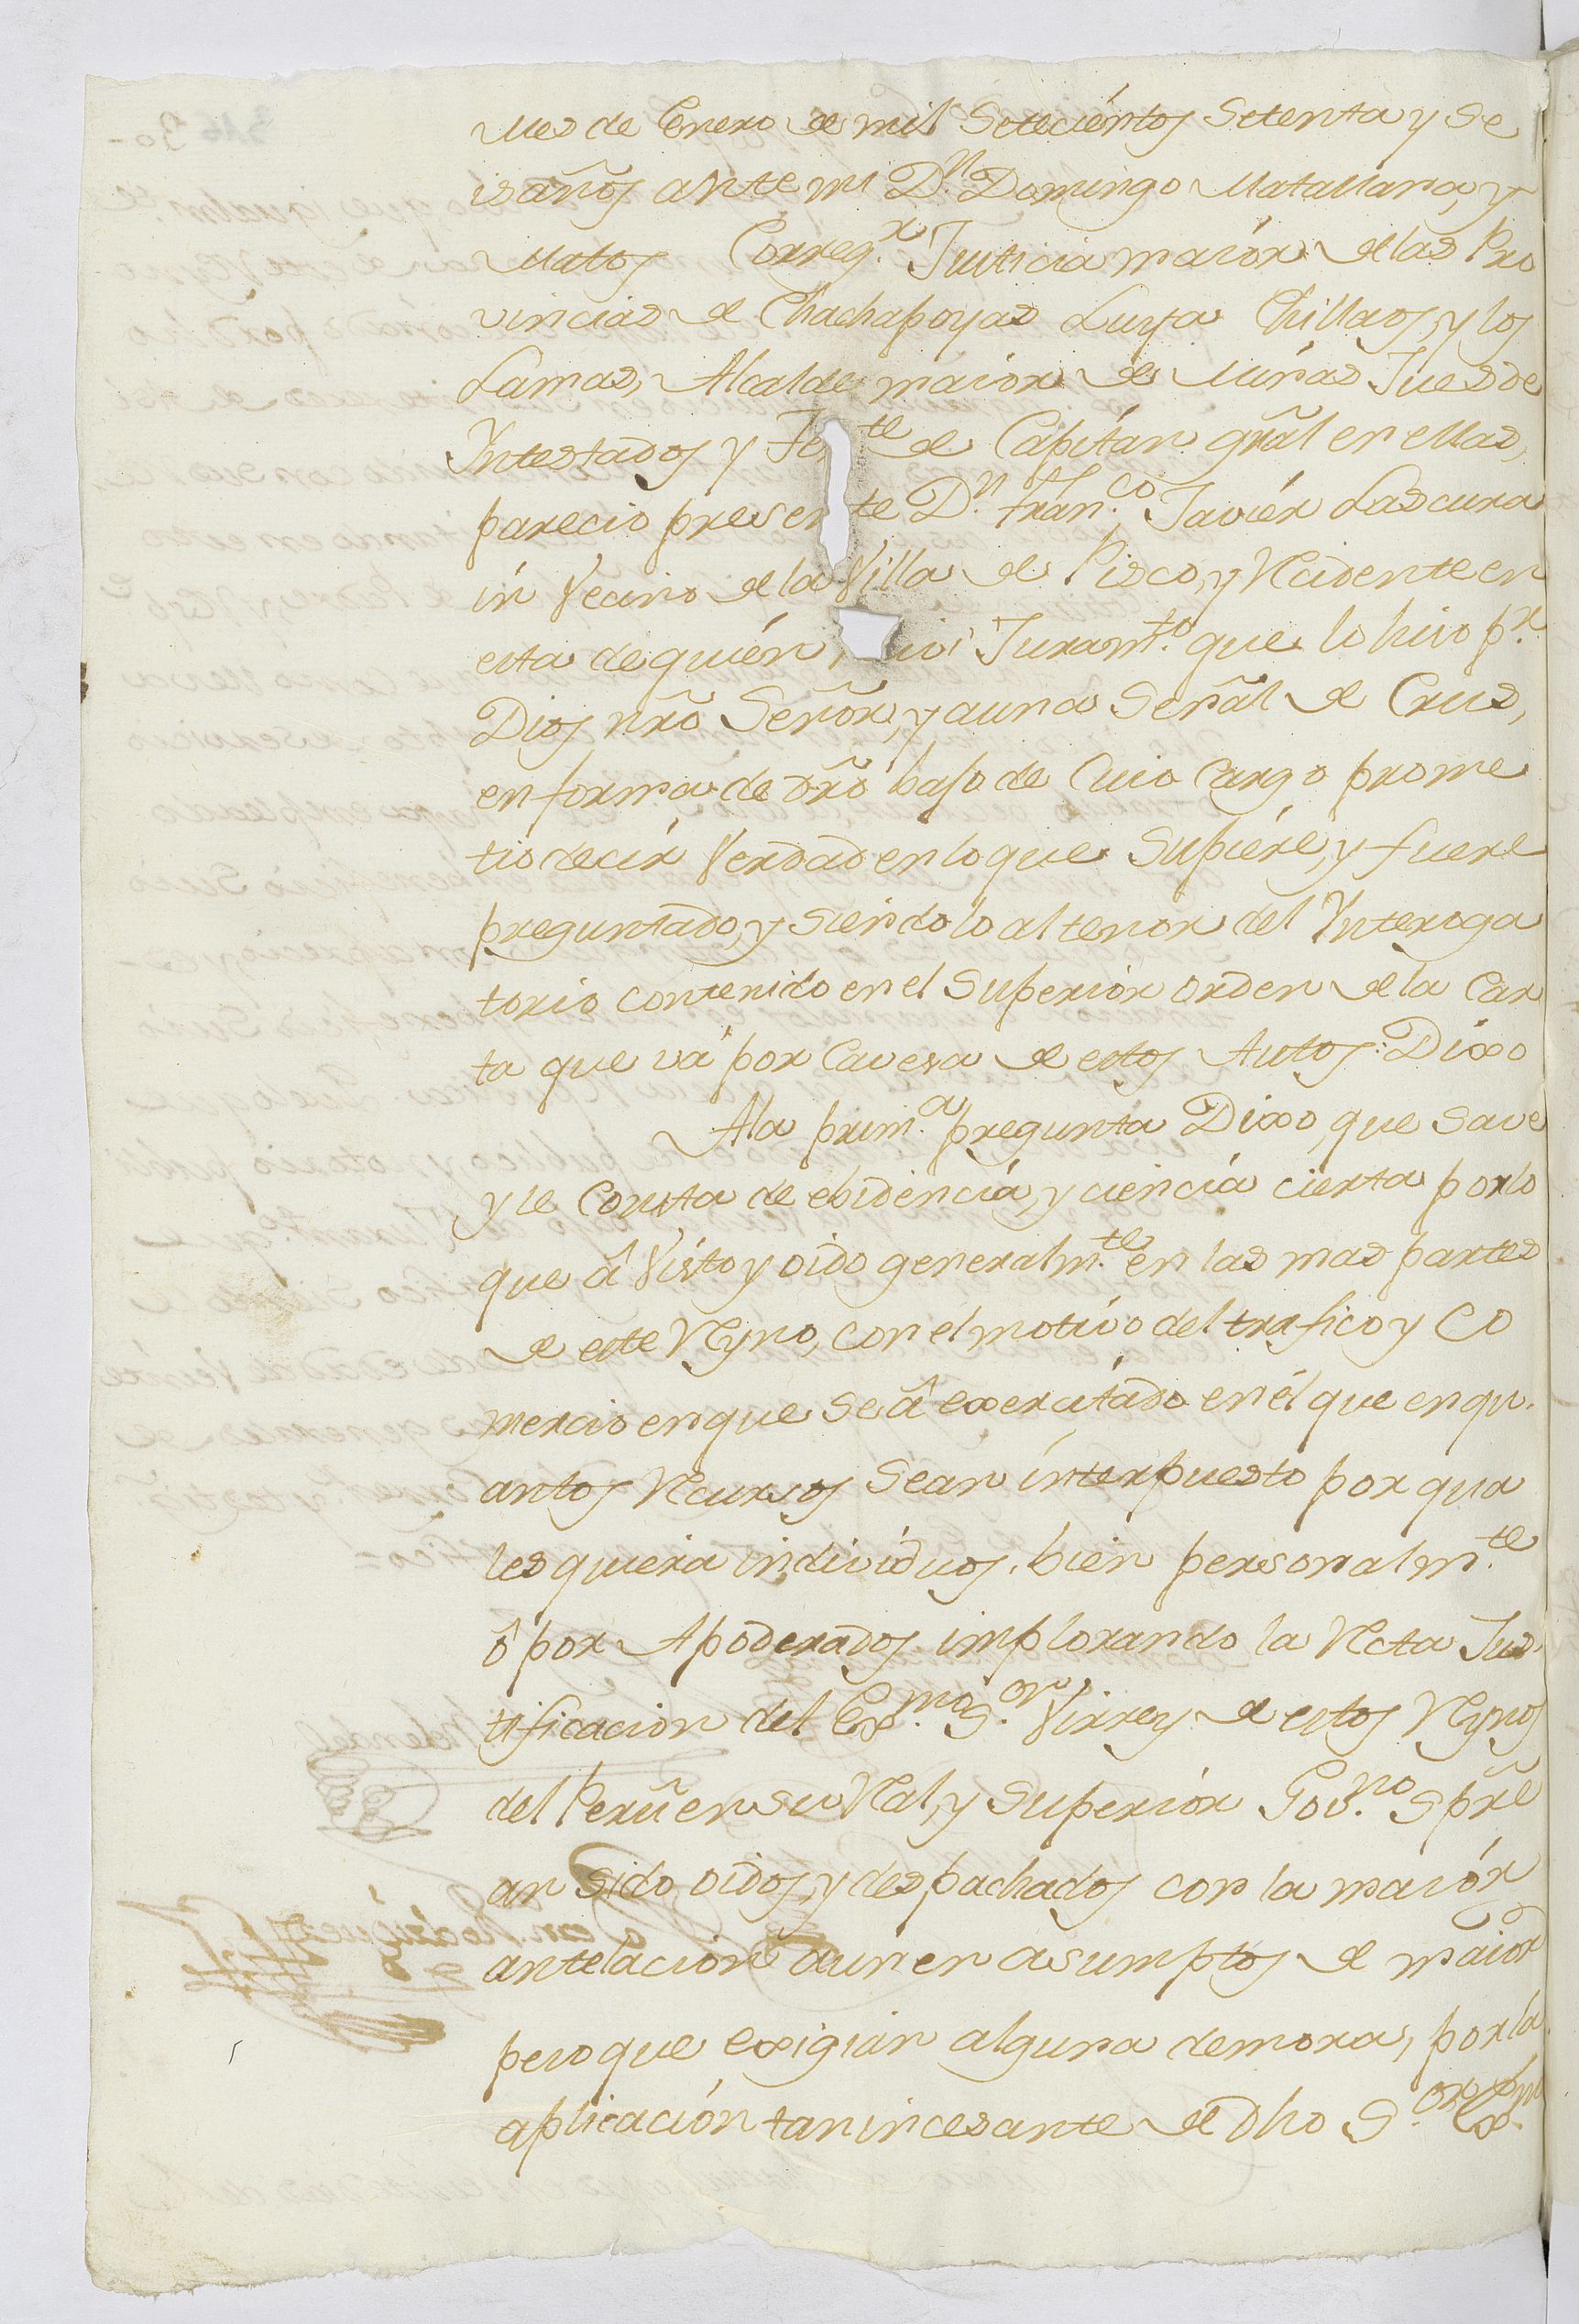 Mes de Enero de mil Setecientos Setenta y Se
is años ante mi D.n Domingo Matallana, y
Matos Correg.r Justicia maior de las Pro
vincias de Chachapoyas Luya Chillaos, y los
Lamas, Alcalde maior de Minas Jues de
Yntestados y Te te de Capitan gñal en ellas,
parecio presente D.n Fran.co Javier Lascura
in Vecino de la Villa de Pisco, y Recidente en
esta de quien Juram.to que lo hiso p.r
Dios nrõ Señor, y a una Señal de Cruz,
en forma de drõ bajo de Cuio Cargo prome
tio decir Verdad en lo que Supiere, y fuere
preguntado, y siendolo al tenor del Ynteroga
torio contenido en el Superior orden de la Car
ta que va por Cavesa de estos Autos: Dixo
A la prim.a pregunta Dixo, que save
y le Consta de ebidencia, y ciencia cierta por lo
que â Visto y oido generalm.te en las mas partes
de este Reyno, con el motivo del trafico y Co
mercio en que se â exercitado en él que en qu.
antos Recursos Sean interpuesto por qua
lesquiera individuos, bien personalm.te
ô por Apoderados implorando la Recta Jus
tificacion del Ex.mo S.or Virrey de estos Reynos
del Perú en su Real, y Superior Gov.no Spr̃e
an sido oidos, y despachados con la maior
antelacion aun en asumptos de maior
peso que exigian alguna demora, por la
aplicación tan incesante de Dho S.or Ex.mo